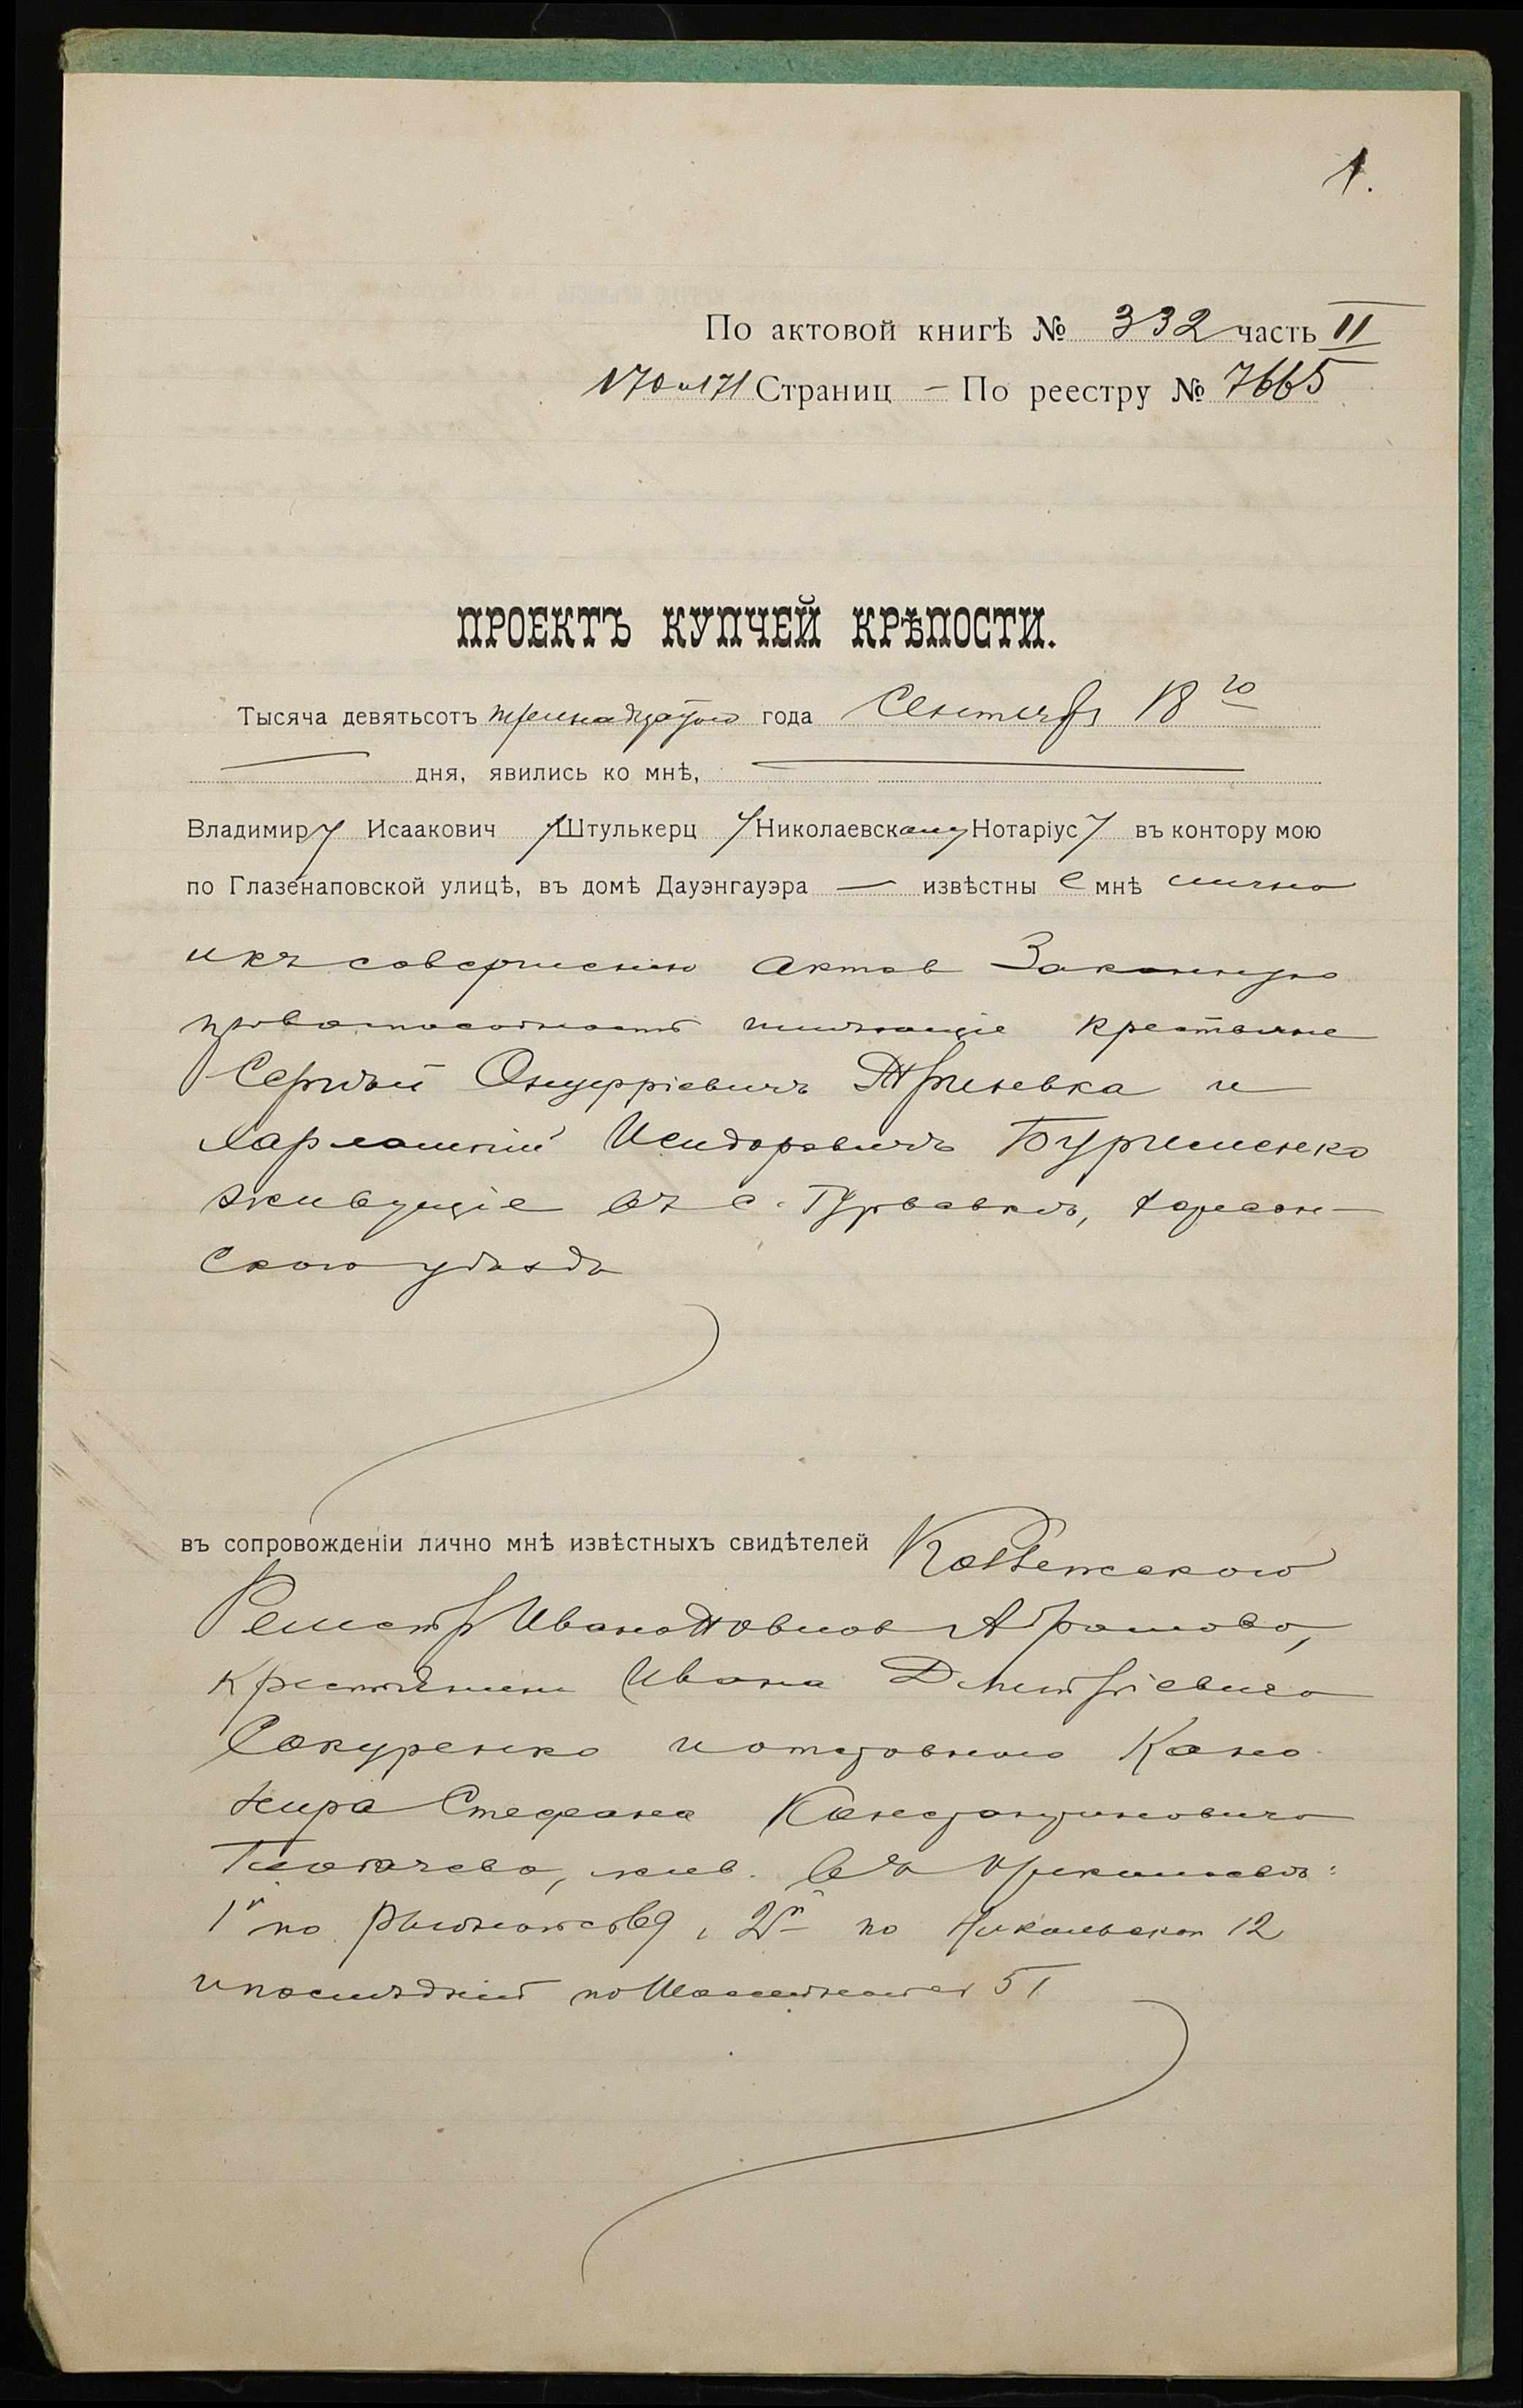 1.
По актовой книгѣ № 332 часть II
170 и 171 Страниц — По реестру № 7665
ПРОЕКТЪ КУПЧЕЙ КРѢПОСТИ.
Тысяча девятьсотъ тринадцатого года Сентября 18 го
дня, явились ко мнѣ,
Владимиру Исаакович Штулькерц Николаевскому Нотаріусу въ контору мою
по Глазенаповской улицѣ, въ домѣ Дауэнгауэра — извѣстные мнѣ лично
и къ совершенію актов законную
правоспособность имѣющіе крестьяне
Сергѣй Онуфріевичъ Гриневка и
Харлампій Исидоровичъ Бурименко
живущіе въ с. Гурьевкѣ, Херсон-
скаго уѣзда
въ сопровожденіи лично мнѣ извѣстныхъ свидѣтелей Коллежскаго
Регистр Ивана Абрамова,
крестьянина Ивана Дмитріевича
Сокуренко и отставного Кано-
нира Стефана Константиновича
жив. въ Николаевѣ:
1й по 2й по Никольской 12
и послѣдній по 51